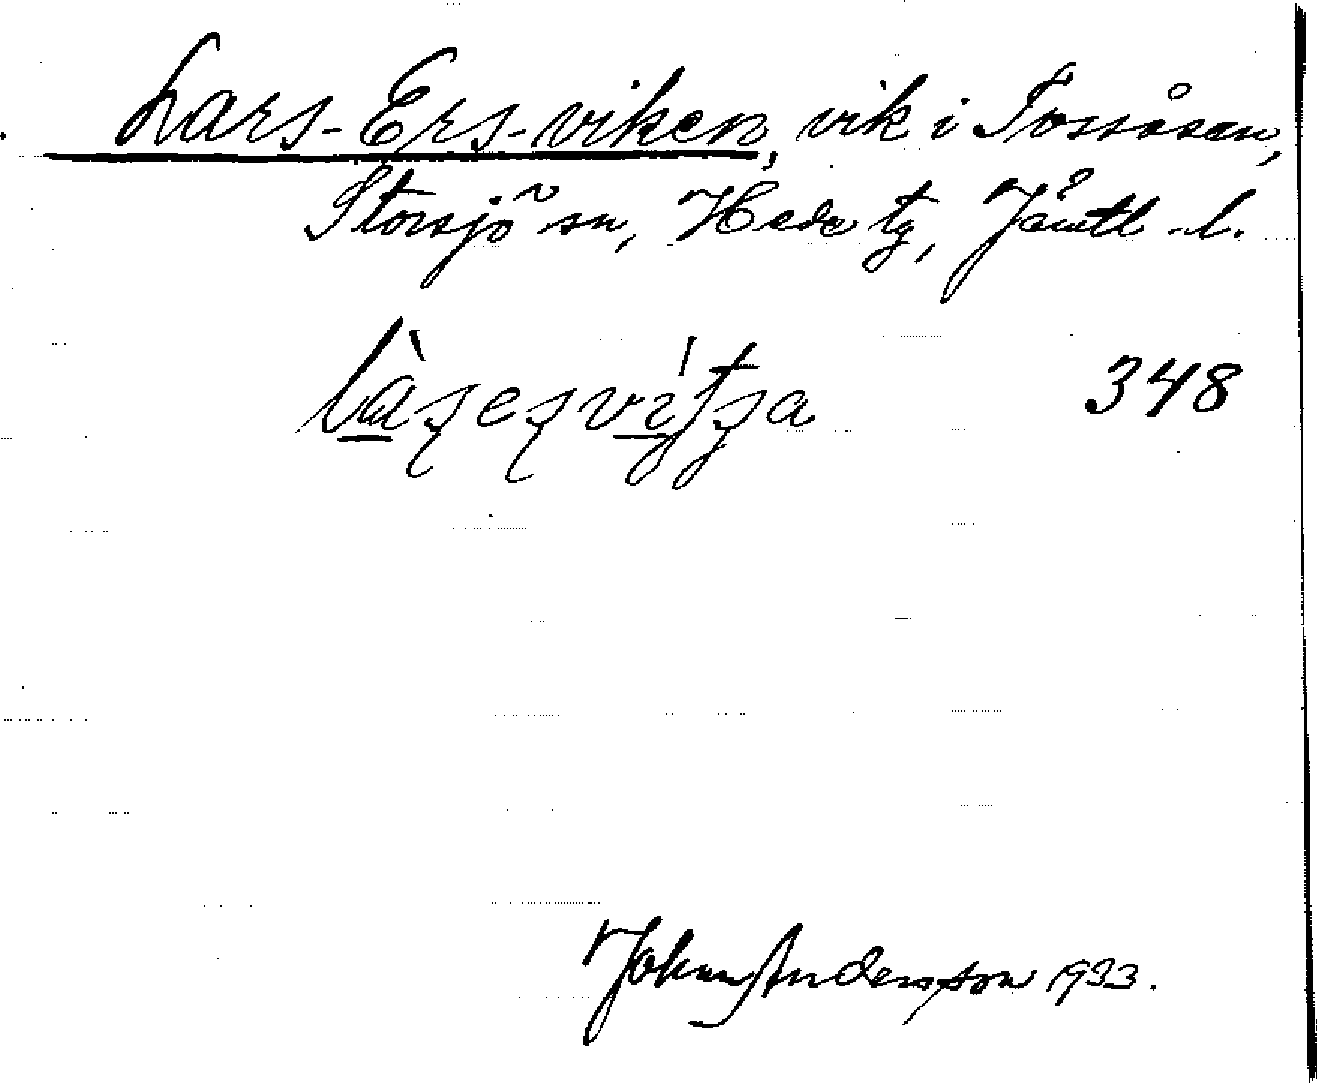 Lars-Ers-viken, vik i Tossåsen,
Storsjö sn, Hede tg, Jämtl. l.
348
John Andersson 1933.